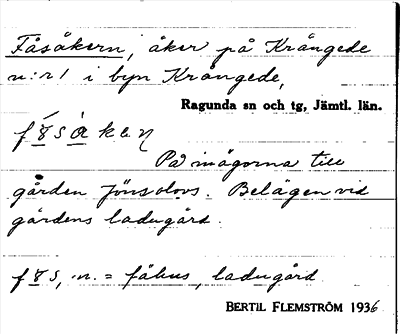 Fåsåkern, åker på Krångede
n:r 1 i byn Krångede,
Ragunda sn och tg, Jämtl. län.
På inägorna till
gården Jönsolovs. Belägen vid
gårdens ladugård.
n. = fähus, ladugård.
BERTIL FLEMSTRÖM 1936